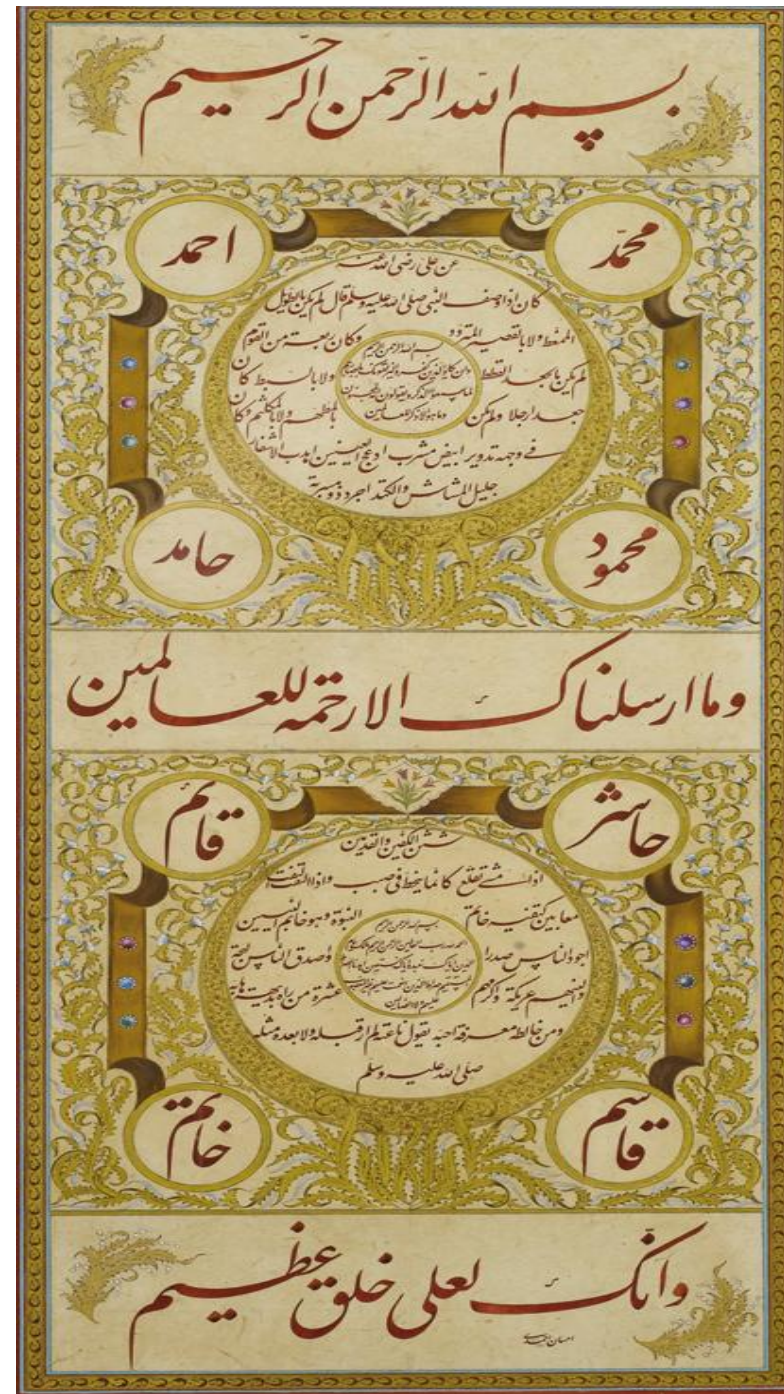 بسم الله الرحمن الرحيم
محمد
احمد
عن علی رضی الله عنه
كان اذا وصف النبی صلی الله علیه وسلم قال لم یكن بالطویل
الممغط ولا بالقصیر المتردد وكان ربعة من القوم
لم یكن بالجعد القطط ولا بالسبط كان
جعدا رجلا ولم یكن بالمطهم ولا بالمكلثم وكان
فی وجهه تدویر ابیض مشرب ادعج العینین اهدب الاشفار
جلیل المشاش والكتد اجرد ذو مسربة
بسم الله الرحمن الرحیم
وما هو الا ذكر للعالمین
محمود
حامد
وما ارسلناك الا رحمة للعالمین
حاشر
قائم
شثن الكفین والقدمین
اذا مشی تقلع كانما ینحط فی صبب واذا التفت التفت
معا بین كتفیه خاتم النبوة وهو خاتم النبیین
اجود الناس صدرا واصدق الناس لهجة
والینهم عریكة واكرمهم عشرة من راه بدیهة هابه
ومن خالطه معرفة احبه یقول ناعته لم ار قبله ولا بعده مثله
صلی الله علیه وسلم
بسم الله الرحمن الرحیم
قاسم
خاتم
وانك لعلی خلق عظیم